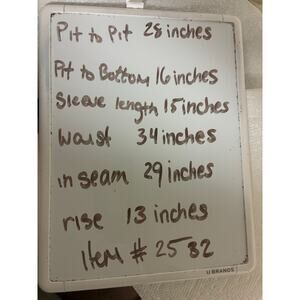 Pit to Pit 28 inches
Pit to Bottom 16 inches
Sleeve length 15 inches
waist 34 inches
in seam 29 inches
rise 13 inches
Item # 2582
U BRANDS